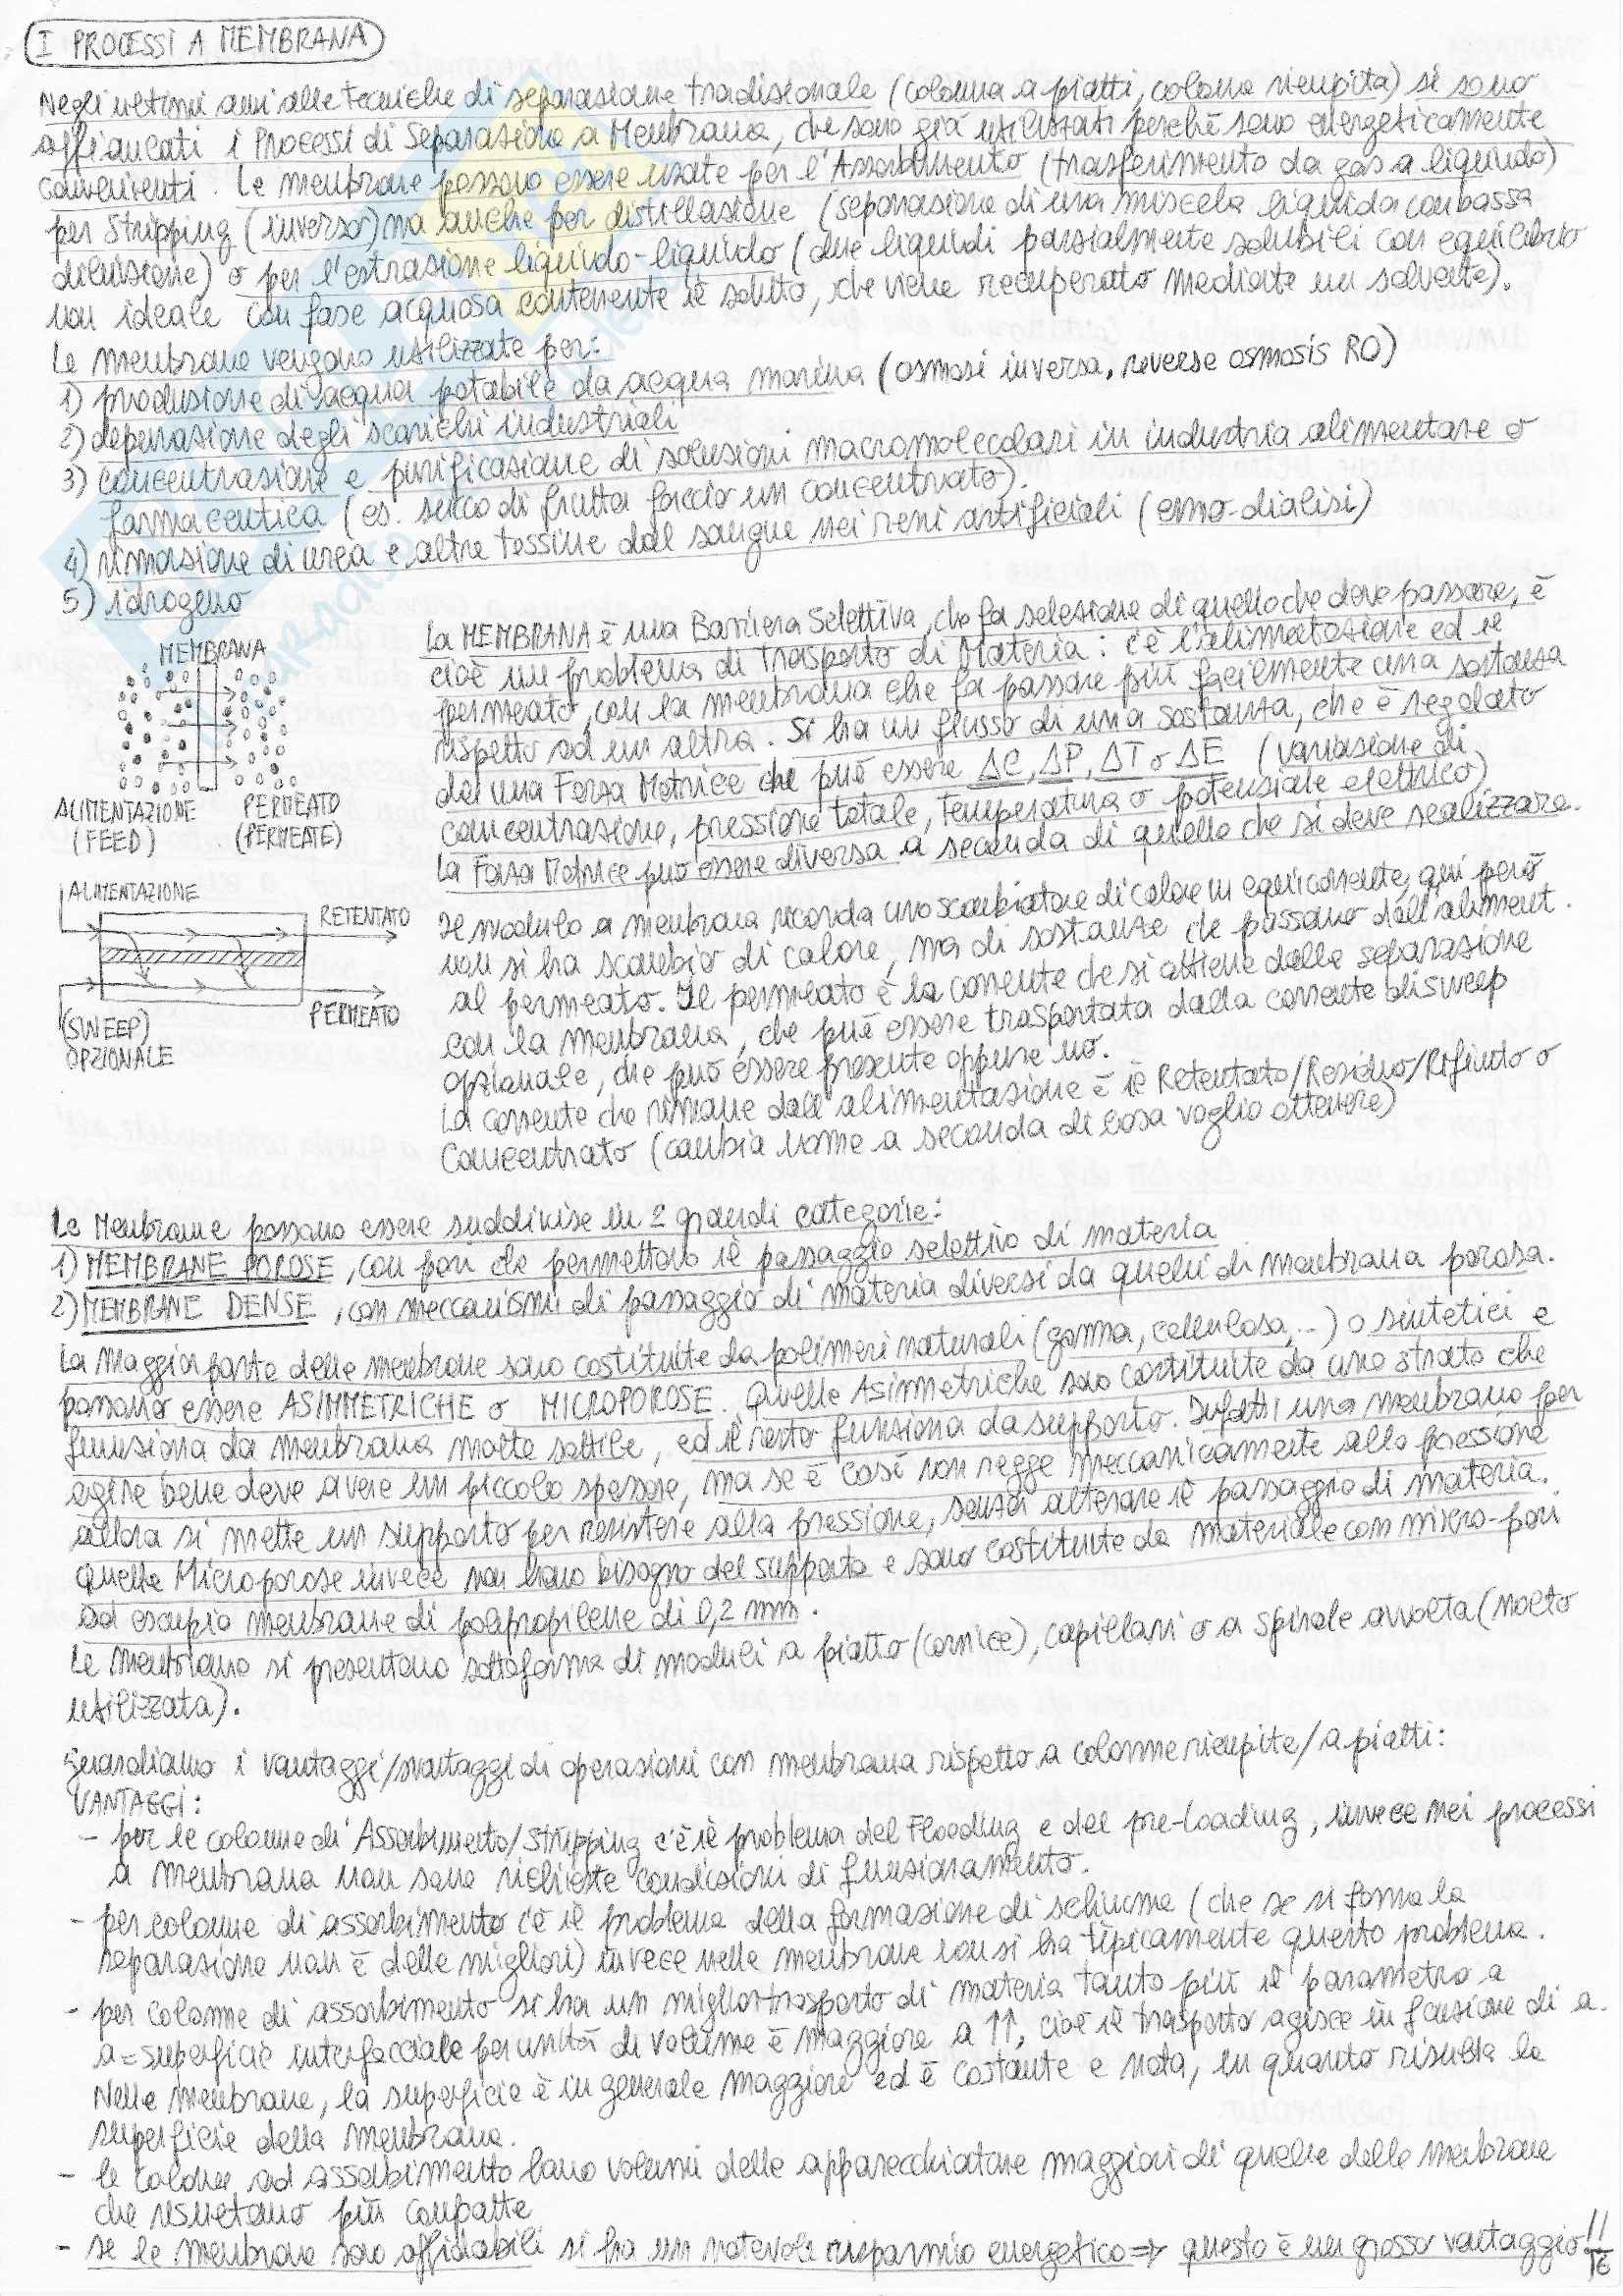 I PROCESSI A MEMBRANA
Negli ultimi anni alle tecniche di separazione tradizionale (colonna a piatti, colonna riempita) si sono
affiancati i Processi di Separazione a Membrana, che sono già utilizzati perchè sono energeticamente
convenienti. Le membrane possono essere usate per l'Assorbimento (trasferimento da gas a liquido)
per Stripping (inverso) ma anche per distillazione (separazione di una miscela liquida con bassa
diluizione) o per l'estrazione liquido-liquido (due liquidi parzialmente solubili con equilibrio
non ideale con fase acquosa contenente il soluto, che viene recuperato mediante un solvente).
Le membrane vengono utilizzate per:
1) produzione di acqua potabile da acqua marina (osmosi inversa, reverse osmosis RO)
2) depurazione degli scarichi industriali
3) concentrazione e purificazione di soluzioni macromolecolari in industria alimentare o
farmaceutica (es. succo di frutta faccio un concentrato).
4) rimozione di urea e altre tossine dal sangue nei reni artificiali (emo-dialisi)
5) idrogeno
MEMBRANA
ALIMENTAZIONE
(FEED)
PERMEATO
(PERMEATE)
La MEMBRANA è una Barriera Selettiva, che fa selezione di quello che deve passare, è
cioè un problema di Trasporto di Materia: c'è l'alimentazione ed il
permeato, con la membrana che fa passare più facilmente una sostanza
rispetto ad un altra. Si ha un flusso di una sostanza, che è regolato
da una Forza Motrice che può essere ΔC, ΔP, ΔT o ΔE (variazione di
concentrazione, pressione totale, temperatura o potenziale elettrico)
La Forza Motrice può essere diversa a seconda di quello che si deve realizzare.
ALIMENTAZIONE
RETENTATO
PERMEATO
(SWEEP)
OPZIONALE
Il modulo a membrana ricorda uno scambiatore di calore in equicorrente, qui però
non si ha scambio di calore, ma di sostanze che passano dall'aliment.
al permeato. Il permeato è la corrente che si ottiene dalla separazione
con la membrana, che può essere trasportata dalla corrente di sweep
opzionale, che può essere presente oppure no.
La corrente che rimane dall'alimentazione è il Retentato/Residuo/Rifiuto o
Concentrato (cambia nome a seconda di cosa voglio ottenere)
Le Membrane possono essere suddivise in 2 grandi categorie:
1) MEMBRANE POROSE, con pori che permettono il passaggio selettivo di materia
2) MEMBRANE DENSE, con meccanismi di passaggio di materia diversi da quelli di membrana porosa.
La Maggior parte delle membrane sono costituite da polimeri naturali (gomma, cellulosa, ..) o sintetici e
possono essere ASIMMETRICHE o MICROPOROSE. Quelle Asimmetriche sono costituite da uno strato che
funziona da membrana molto sottile, ed il resto funziona da supporto. Infatti una membrana per
agire bene deve avere un piccolo spessore, ma se è così non regge meccanicamente alla pressione
allora si mette un supporto per resistere alla pressione, senza alterare il passaggio di materia.
Quelle Microporose invece non hanno bisogno del supporto e sono costituite da materiale con micro-pori
ad esempio membrane di polipropilene di 0,2 mm.
Le membrane si presentano sottoforma di moduli a piatto (cornice), capillari o a spirale avvolta (molto
utilizzata).
Guardiamo i vantaggi/svantaggi di operazioni con membrana rispetto a colonne riempite/a piatti:
VANTAGGI:
- per le colonne di Assorbimento/Stripping c'è il problema del Flooding e del pre-Loading, invece nei processi
a membrana non sono richieste condizioni di funzionamento.
- per colonne di assorbimento c'è il problema della formazione di schiuma (che se si forma la
separazione non è delle migliori) invece nelle membrane non si ha tipicamente questo problema.
- per colonne di assorbimento si ha un miglior trasporto di materia tanto più il parametro a
a = superficie interfacciale per unità di volume è maggiore a ↑↑, cioè il trasporto agisce in funzione di a.
Nelle membrane, la superficie è in generale maggiore ed è costante e nota, in quanto risulta la
superficie della membrana.
- le colonne ad assorbimento hanno volumi delle apparecchiature maggiori di quelle delle membrane
che risultano più compatte
- se le membrane sono affidabili si ha un notevole risparmio energetico ⇒ questo è un grosso vantaggio!!